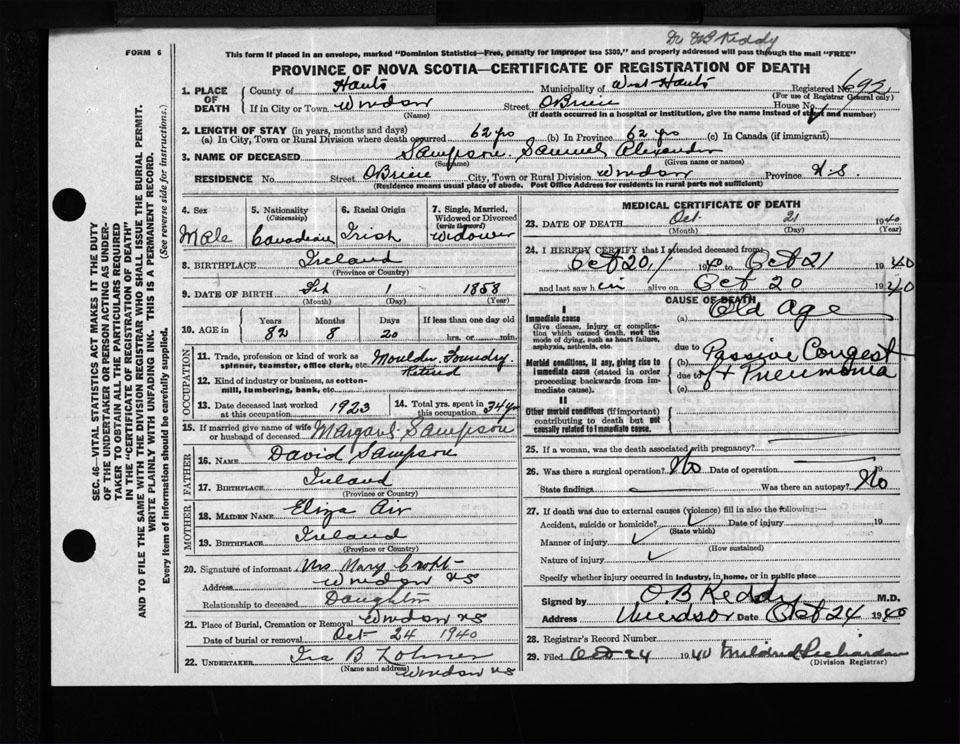 FORM 6
Dr Reddy
This form if placed in an envelope, marked "Dominion Statistics—Free, penalty for improper use $300," and properly addressed will pass through the mail "FREE"
PROVINCE OF NOVA SCOTIA—CERTIFICATE OF REGISTRATION OF DEATH
1. PLACE OF DEATH County of Hants Municipality of West Hants Registered No. 692
(For use of Registrar General only)
If in City or Town Windsor Street O'Brien House No.
(Name) (If death occurred in a hospital or institution, give the name instead of street and number)
2. LENGTH OF STAY (in years, months and days)
(a) In City, Town or Rural Division where death occurred 62 yrs (b) In Province 62 yrs (c) In Canada (if immigrant)
3. NAME OF DECEASED Sampson Samuel Alexander
(Surname) (Given name or names)
RESIDENCE No. Street O'Brien City, Town or Rural Division Windsor Province N.S.
(Residence means usual place of abode. Post Office Address for residents in rural parts not sufficient)
4. Sex Male
5. Nationality (Citizenship) Canadian
6. Racial Origin Irish
7. Single, Married, Widowed or Divorced (write the word) Widower
8. BIRTHPLACE Ireland
(Province or Country)
9. DATE OF BIRTH Feb 1 1858
(Month) (Day) (Year)
10. AGE in Years Months Days If less than one day old
82 8 20 hrs. or min.
OCCUPATION
11. Trade, profession or kind of work as spinner, teamster, office clerk, etc. Moulder Foundry.
Retired
12. Kind of industry or business, as cotton-mill, lumbering, bank, etc.
13. Date deceased last worked at this occupation 1923
14. Total yrs. spent in this occupation 34 yrs
15. If married give name of wife or husband of deceased Margaret Sampson
FATHER
16. NAME David Sampson
17. BIRTHPLACE Ireland
(Province or Country)
MOTHER
18. MAIDEN NAME Eliza Air
19. BIRTHPLACE Ireland
(Province or Country)
20. Signature of informant Mrs Mary
Address Windsor NS
Relationship to deceased Daughter
21. Place of Burial, Cremation or Removal Windsor NS
Date of burial or removal Oct 24 1940
22. UNDERTAKER Ira B
(Name and address) Windsor NS
MEDICAL CERTIFICATE OF DEATH
23. DATE OF DEATH Oct. 21 1940
(Month) (Day) (Year)
24. I HEREBY CERTIFY that I attended deceased from
Oct 20, 1940 to Oct 21 1940
and last saw him alive on Oct 20 1940
CAUSE OF DEATH
I
Immediate cause (a) Old Age
Give disease, injury or complication which caused death, not the mode of dying, such as heart failure, asphyxia, asthenia, etc.
due to
Morbid conditions, if any, giving rise to immediate cause (stated in order proceeding backwards from immediate cause).
(b) Passive Congest
due to
(c) Pneumonia
II
Other morbid conditions (if important) contributing to death but not causally related to immediate cause.
25. If a woman, was the death associated with pregnancy?
26. Was there a surgical operation? No Date of operation 19
State findings Was there an autopsy? No
27. If death was due to external causes (violence) fill in also the following:—
Accident, suicide or homicide? Date of injury 19
(State which)
Manner of injury
(How sustained)
Nature of injury
Specify whether injury occurred in industry, in home, or in public place
Signed by O.B Keddy M.D.
Address Windsor Date Oct 24 1940
28. Registrar's Record Number
29. Filed Oct 24 1940 Mildred Richardson
(Division Registrar)
SEC. 46—VITAL STATISTICS ACT MAKES IT THE DUTY
OF THE UNDERTAKER OR PERSON ACTING AS UNDER-
TAKER TO OBTAIN ALL THE PARTICULARS REQUIRED
IN THE "CERTIFICATE OF REGISTRATION OF DEATH"
AND TO FILE THE SAME WITH THE DIVISION REGISTRAR WHO SHALL ISSUE THE BURIAL PERMIT.
WRITE PLAINLY WITH UNFADING INK. THIS IS A PERMANENT RECORD.
Every item of information should be carefully supplied. (See reverse side for instructions.)